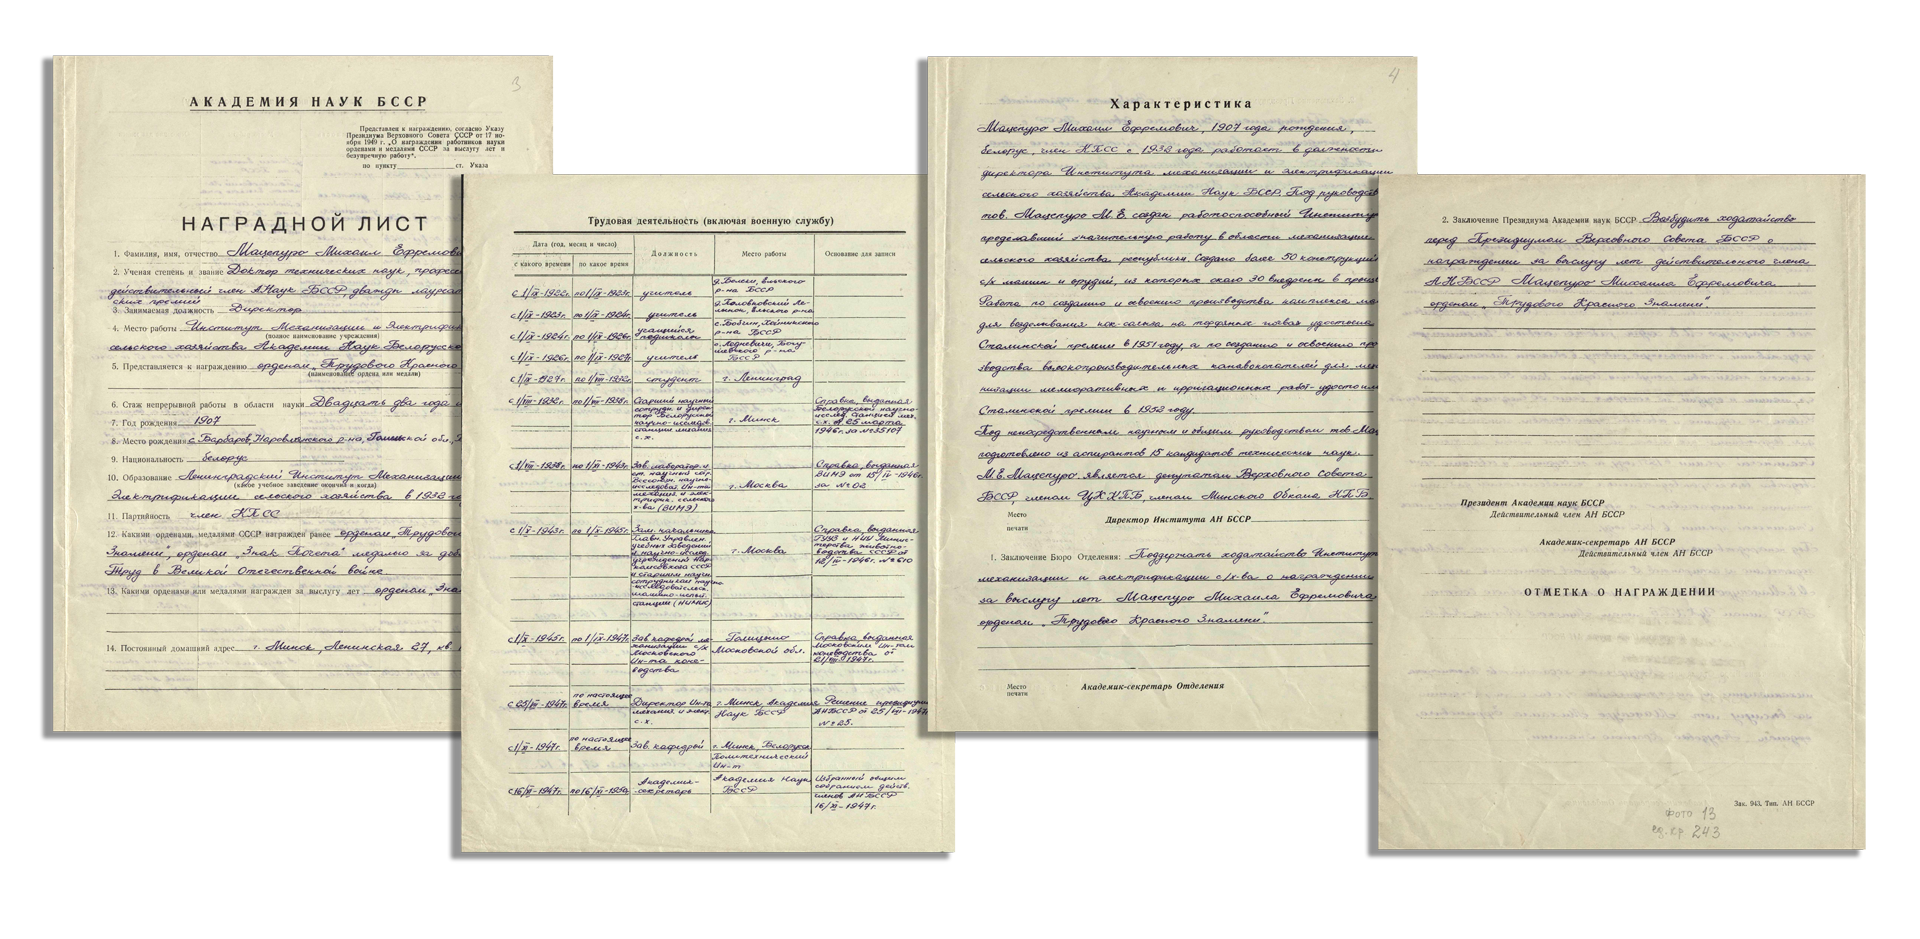 3
АКАДЕМИЯ НАУК БССР
Представлен к награждению, согласно Указу
Президиума Верховного Совета СССР от 17 но-
ября 1949 г. „О награждении работников науки
орденами и медалями СССР за выслугу лет и
безупречную работу“.
по пункту ст. Указа
НАГРАДНОЙ ЛИСТ
1. Фамилия, имя, отчество Мацепуро Михаил Ефремови
2. Ученая степень и звание Доктор технических наук, профес
действительный член А.Наук БССР, дважды лауреат
ских премий
3. Занимаемая должность Директор
4. Место работы Институт Механизации и Электрифик
(полное наименование учреждения)
сельского хозяйства Академии Наук Белорусско
5. Представляется к награждению орденом „Трудового Красного
(наименование ордена или медали)
6. Стаж непрерывной работы в области науки Двадцать два года
7. Год рождения 1907
8. Место рождения с. Барбаров, Наровлянского р-на, Гомельской обл.,
9. Национальность белорус
10. Образование Ленинградский Институт Механизации
(какое учебное заведение окончил и когда)
Электрификации сельского хозяйства в 1932
11. Партийность член КПСС
12. Какими орденами, медалями СССР награжден ранее орденом „Трудовог
Знамени", орденом „Знак Почета" медалью за доб
Труд в Великой Отечественной войне
13. Какими орденами или медалями награжден за выслугу лет орденом „Зна
14. Постоянный домашний адрес г. Минск, Ленинская 27, кв.
Трудовая деятельность (включая военную службу)
Дата (год, месяц и число) Должность Место работы Основание для записи
с какого времени по какое время
с 1/IX-1922г. по 1/IX-1923г. учитель р-на БССР
с 1/IX-1923г. по 1/IX-1924г. учитель
с 1/IX-1924г. по 1/IX-1926г. учащийся р-на БССР
с 1/IX-1926г. по 1/IX-1927г. учитель БССР
с 1/IX-1927г. студент г. Ленинград
Старший научный сотрудн. и дирек- тор Белорусской научно-исследов. станции механиз. с.х. г. Минск Справка, выданная Белорусской научно- исслед. станцией мех. с.х. от 25 марта 1946г. за №35107
Зав. лаборатор. и ст. научный сотр. Всесоюзн. научно- исследов. Ин-та механиз. и элек- трифик. сельск. х-ва (ВИМЭ) г. Москва Справка, выданная ВИМЭ от 15/IV-1946г. за № 02
с 1/X-1943г. по 1/X-1945г. Зам. начальника Главн. Управлен. учебных заведений и научно-исслед. учреждений и старший научн. сотрудник г. Москва Справка, выданная ГУУЗ и НИУ Минис- терства животно- водства СССР от 18/IV-1946г. №610
с 1/X-1945г. по 1/IX-1947г. Зав. кафедрой ме- ханизации с/х Московского Ин-та коне- водства Голицыно Московской обл. Справка, выданная Московским Ин-том коневодства от 21/VIII-1947г.
с 25/VII-1947г. по настоящее время Директор Ин-та механиз. и электр. с.х. г. Минск Академия Наук БССР Решение президиума АН БССР от 25/VII-1947г. №25.
с 1/XI-1947г. по настоящее время Зав. кафедрой г. Минск, Белорусск. Политехнический Ин-т
с 16/XI-1947г. Академик- секретарь Академия Наук БССР Избранный общим собранием действ. членов АН БССР 16/XI-1947г.
4
Характеристика
Мацепуро Михаил Ефремович, 1907 года рождения,
белорус, член КПСС с 1932 года работает в должности
директора Института механизации и электрификации
сельского хозяйства Академии Наук БССР. Под руководст
тов. Мацепуро М.Е. создан работоспособный Институт
проделавший значительную работу в области механизации
сельского хозяйства республики. Создано более 50 конструкций
с/х машин и орудий, из которых около 30 внедрены в произв
Работа по созданию и освоению производства комплекса ма
для возделывания кок-сагыза на торфяных почвах удостоена
Сталинской премии в 1951 году, а по созданию и освоению про
зводства высокопроизводительных канавокопателей для ме
низации мелиоративных и ирригационных работ - удостоен
Сталинской премии в 1952 году.
Под непосредственным научным и общим руководством тов. Мац
подготовлено из аспирантов 15 кандидатов технических наук.
М.Е. Мацепуро является депутатом Верховного Совета
БССР, членом ЦК КПБ, членом Минского Обкома КПБ
Место
печати
Директор Института АН БССР
1. Заключение Бюро Отделения: Поддержать ходатайство Институт
механизации и электрификации с/х-ва о награждении
за выслугу лет Мацепуро Михаила Ефремовича
орденом „Трудового Красного Знамени".
Место
печати
Академик-секретарь Отделения
2. Заключение Президиума Академии наук БССР Возбудить ходатайство
перед Президиумом Верховного Совета БССР о
награждении за выслугу лет действительного члена
АН БССР Мацепуро Михаила Ефремовича
орденом „Трудового Красного Знамени".
Президент Академии наук БССР
Действительный член АН БССР
Академик-секретарь АН БССР
Действительный член АН БССР
ОТМЕТКА О НАГРАЖДЕНИИ
Зак. 943. Тип. АН БССР
фото 13
ед.хр 243